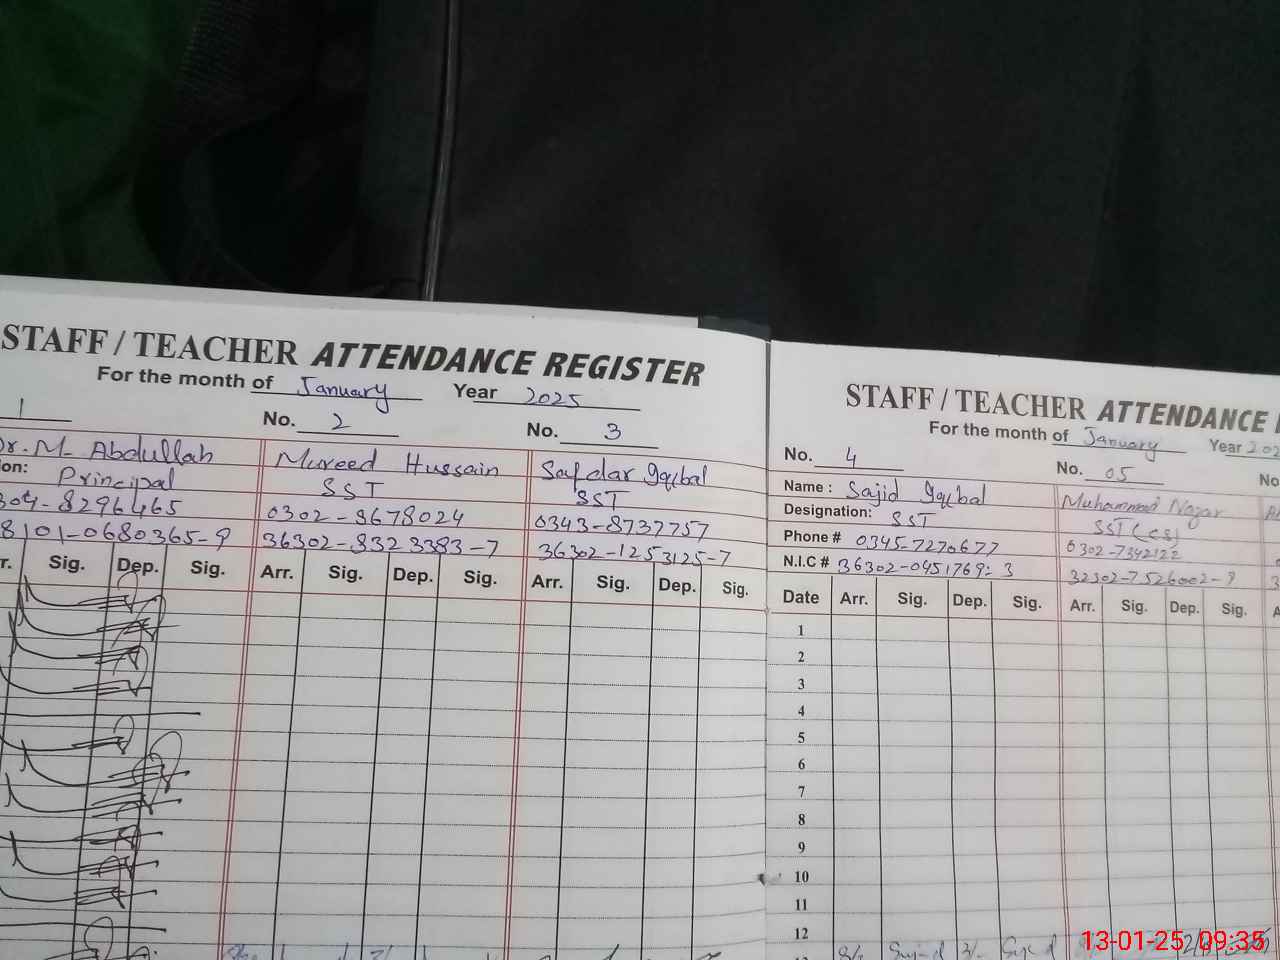 STAFF / TEACHER ATTENDANCE REGISTER
For the month of January Year 2025
1 No. 2 No. 3
Dr. M. Abdullah Mureed Hussain Safdar Iqbal
ion: Principal SST SST
304-8296465 0302-8678024 0343-8737757
8101-0680365-9 36302-8323383-7 36302-1253125-7
r. Sig. Dep. Sig. Arr. Sig. Dep. Sig. Arr. Sig. Dep. Sig.
STAFF / TEACHER ATTENDANCE
For the month of January Year 202
No. 4 No. 05 No
Name : Sajid Iqbal Muhammad Nazar
Designation: SST SST (cs)
Phone # 0345-7270677 0302-7342122
N.I.C # 36302-0451769-3 32302-7526002-9
Date Arr. Sig. Dep. Sig. Arr. Sig. Dep. Sig. A
1
2
3
4
5
6
7
8
9
10
11
12
13-01-25 09:35